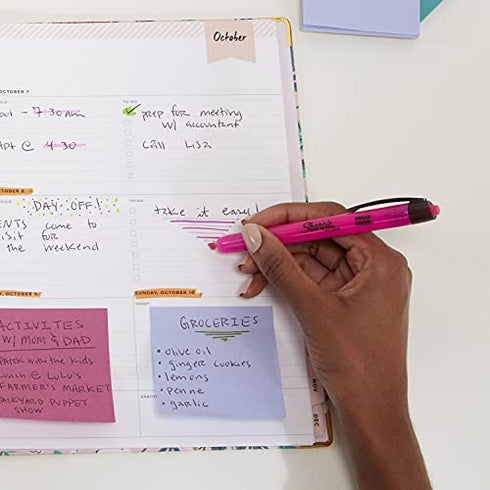 October
OCTOBER 7
- 7:30am
prep for meeting
w/ accountant
@ 4:30
Call Lisa
OCTOBER 8
DAY OFF!
take it easy!
come to
visit for
the weekend
OCTOBER 9
SUNDAY, OCTOBER 10
ACTIVITES
W/ MOM & DAD
PARK WITH THE KIDS
LUNCH @ LULU'S
FARMER'S MARKET
BACKYARD PUPPET
SHOW
GROCERIES
• olive oil
• ginger cookies
• lemons
• penne
• garlic
Sharpie
NOV
DEC